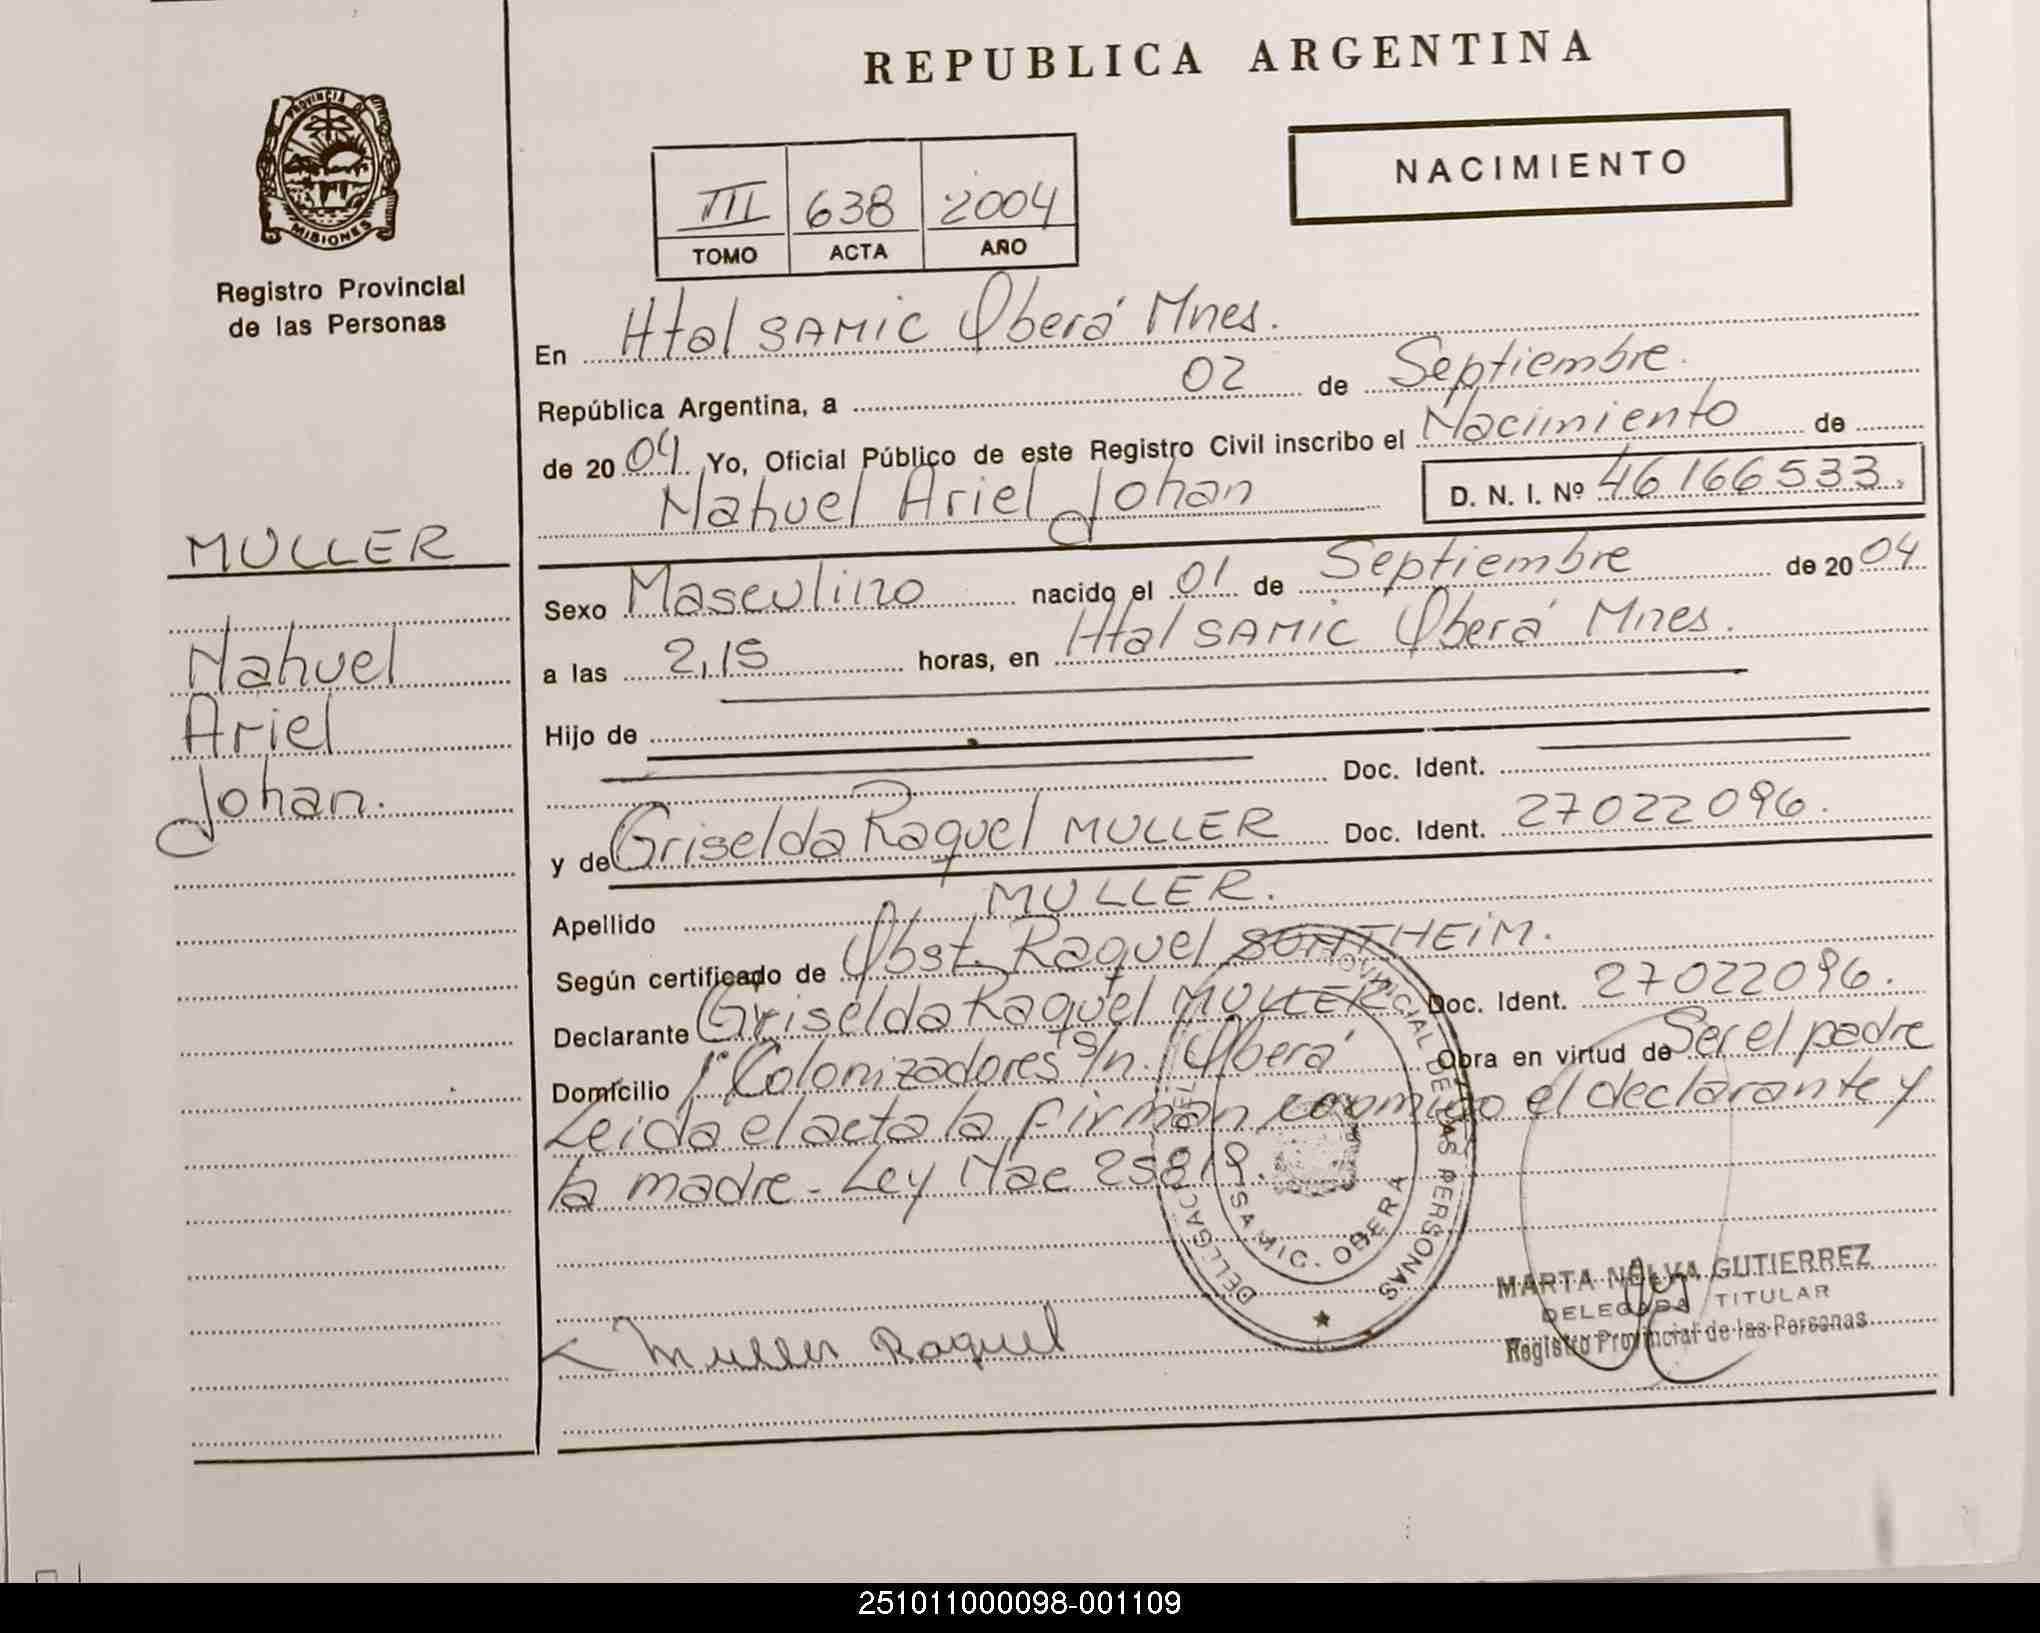 REPUBLICA ARGENTINA
PROVINCIA DE
MISIONES
Registro Provincial
de las Personas
NACIMIENTO
III 638 2004
TOMO ACTA AÑO
En Htal SAMIC Oberá Mnes.
República Argentina, a 02 de Septiembre.
de 2004. Yo, Oficial Público de este Registro Civil inscribo el Nacimiento de
Nahuel Ariel Johan D. N. I. Nº 46166533.
MULLER
Nahuel
Ariel
Johan.
Sexo Masculino nacido el 01 de Septiembre de 2004
a las 2,15 horas, en Htal SAMIC Oberá Mnes.
Hijo de
Doc. Ident.
y de Griselda Raquel MULLER Doc. Ident. 27022096.
Apellido MULLER.
Según certificado de Obst. Raquel SONTHEIM.
Declarante Griselda Raquel MULLER Doc. Ident. 27022096.
Domicilio 1º Colonizadores s/n. Oberá Obra en virtud de Ser el padre
Leida el acta la firman conmigo el declarante y
la madre - Ley Nac 25819.
DELEGACION DEL REGISTRO PROVINCIAL DE LAS PERSONAS
SAMIC. OBERA
Muller Raquel
MARTA NELVA GUTIERREZ
DELEGADA TITULAR
Registro Provincial de las Personas
251011000098-001109